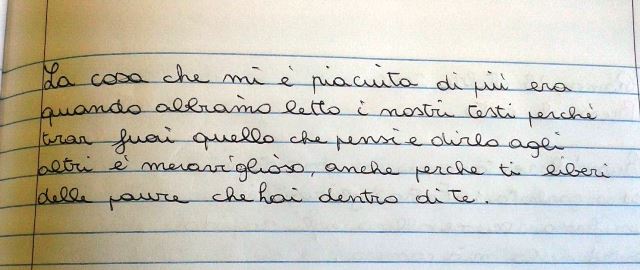 La cosa che mi è piaciuta di più era
quando abbiamo letto i nostri testi perché
tirar fuai quello che pensi e dirlo agli
altri è meraviglioso, anche perche ti liberi
delle paure che hai dentro di te.